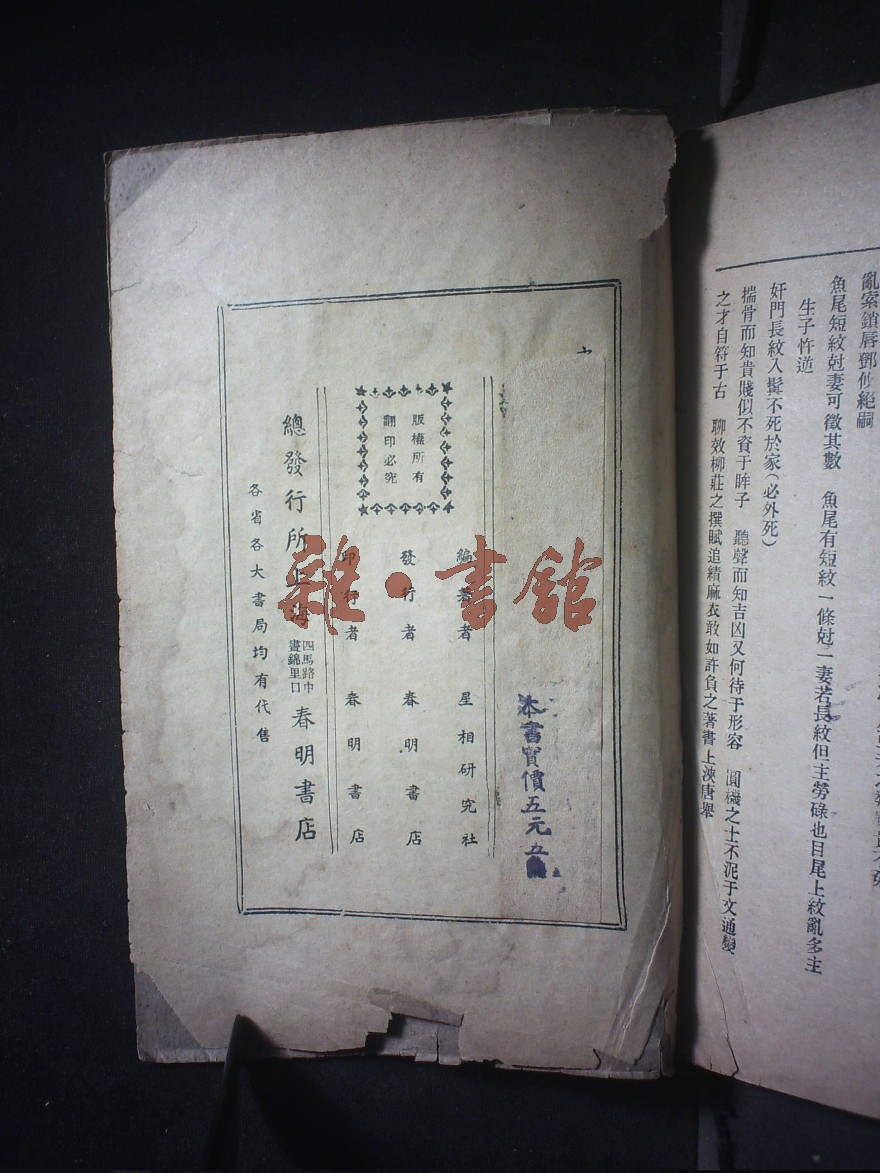 亂索鎖唇鄧攸絕嗣
魚尾短紋尅妻可徵其數　魚尾有短紋一條尅一妻若長紋但主勞碌也目尾上紋亂多主
生子忤逆
奸門長紋入鬢不死於家（必外死）
揣骨而知貴賤似不資于眸子　聽聲而知吉凶又何待于形容　圓機之士不泥于文通變
之才自符于古　聊效柳莊之撰賦追績麻衣敢如許負之著書上浹唐舉
本書實價五元五角
編著者　星相研究社
發行者　春明書店
印行者　春明書店
版權所有
翻印必究
總發行所上海四馬路中晝錦里口春明書店
各省各大書局均有代售
雜·書館